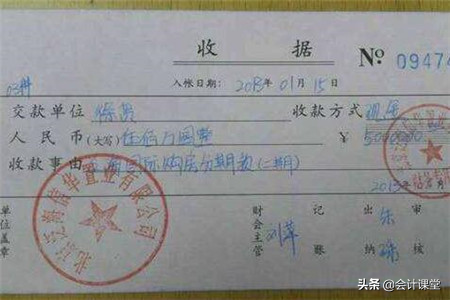 收 据
№ 09474
入帐日期：2013年01月15日
交款单位 徐 收款方式 现金
人民币(大写) 伍佰万圆整 ￥5000000
收款事由 国际购房分期款(二期)
2013年 月
北京 海 华置业有限公司
单位盖章 财会主管 刘萍 记账 出纳 审核
头条 @会计课堂